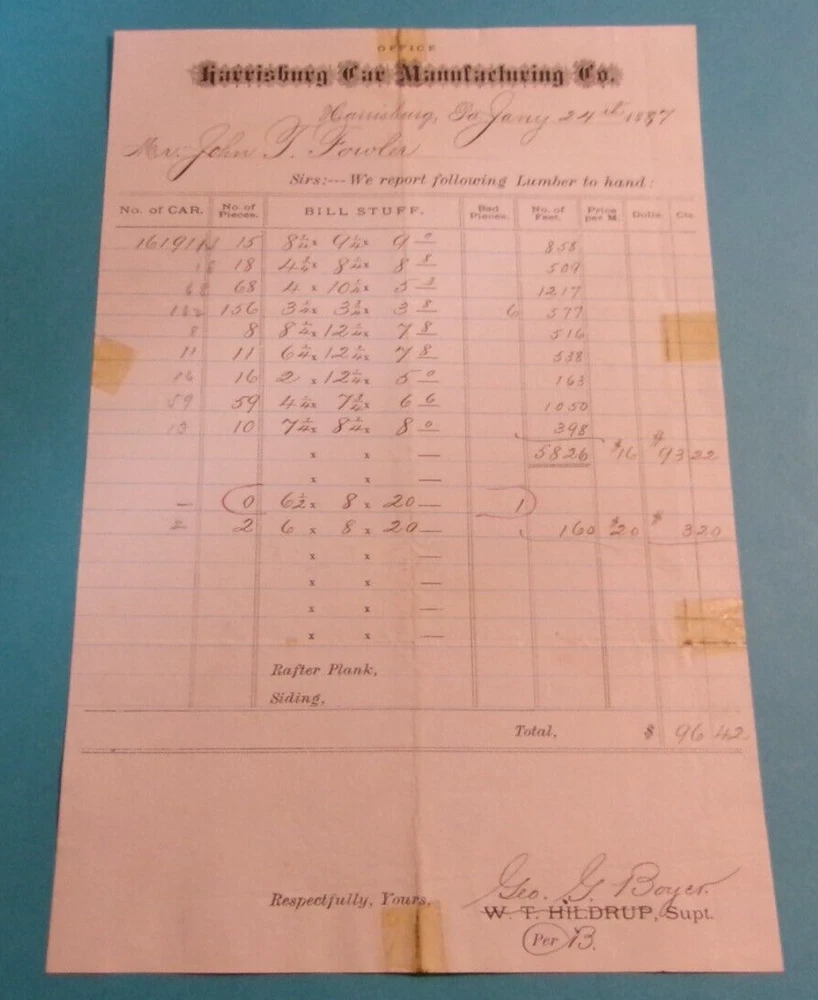 OFFICE
Harrisburg Car Manufacturing Co.
Harrisburg, Pa Jany 24th 1887
Mr. John T. Fowler
Sirs:--- We report following Lumber to hand:
No. of CAR. No. of Pieces. BILL STUFF. Bad Pieces. No. of Feet. Price per M. Dolls. Cts.
16191 15 8 1/4 x 9 1/4 x 9 0 858
18 18 4 3/4 x 8 1/4 x 8 8 509
68 68 4 x 10 1/4 x 5 3 1217
162 156 3 1/4 x 3 3/4 x 3 8 6 577
8 8 8 1/4 x 12 1/4 x 7 8 516
11 11 6 1/4 x 12 1/4 x 7 8 538
16 16 2 x 12 1/4 x 5 0 163
59 59 4 1/4 x 7 3/4 x 6 6 1050
10 10 7 1/4 x 8 1/4 x 8 0 398
x x — 5826 $16 $93 22
x x —
— 0 6 1/2 x 8 x 20 — 1
2 2 6 x 8 x 20 — 160 $20 $ 3 20
x x —
x x —
x x —
x x —
Rafter Plank,
Siding,
Total, $ 96 42
Geo. G. Boyer
Respectfully, Yours,
W. T. HILDRUP, Supt.
Per B.